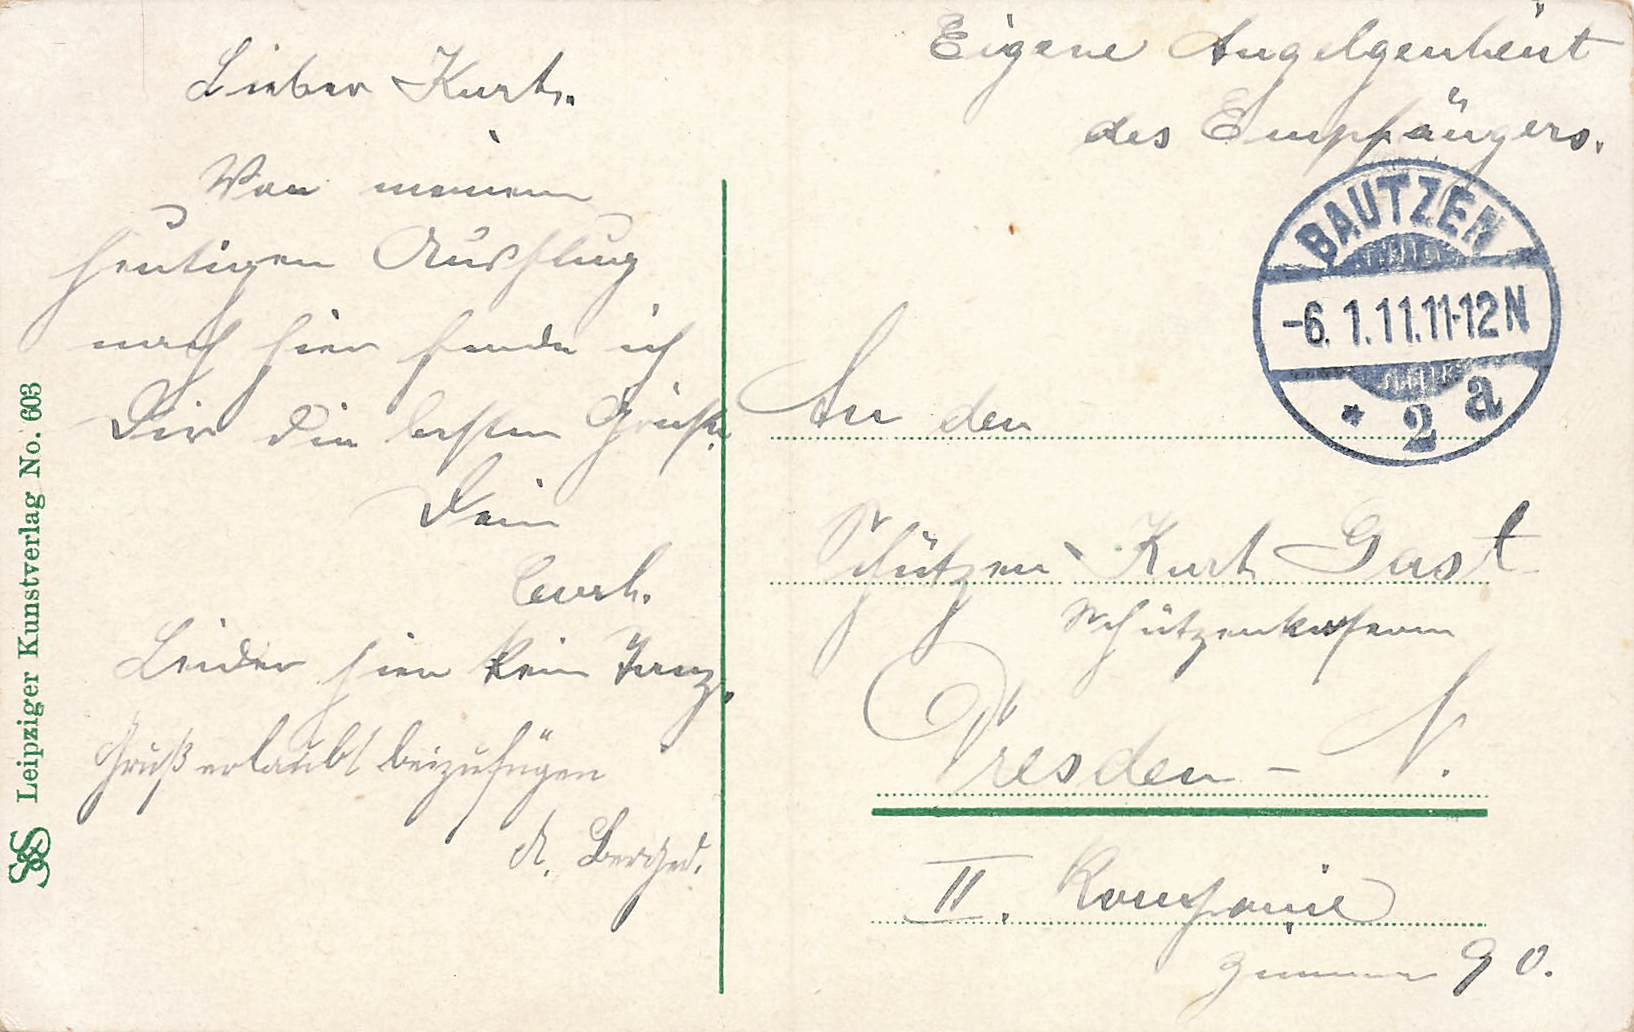 Lieber Kurt.
Von meinem
heutigen Ausflug
nach hier sende ich
Dir die besten Grüße.
Dein
Curt.
Leider hier kein Tanz.
Gruß erlaubt beizufügen
Leipziger Kunstverlag No. 603
Eigene Angelgenheit
des Empfängers.
BAUTZEN
-6. 1. 11. 11-12 N
* 2 a
An den
Schützen Kurt Gast
Schützenkaserne
Dresden - N.
II. Kompanie
Zimmer 90.